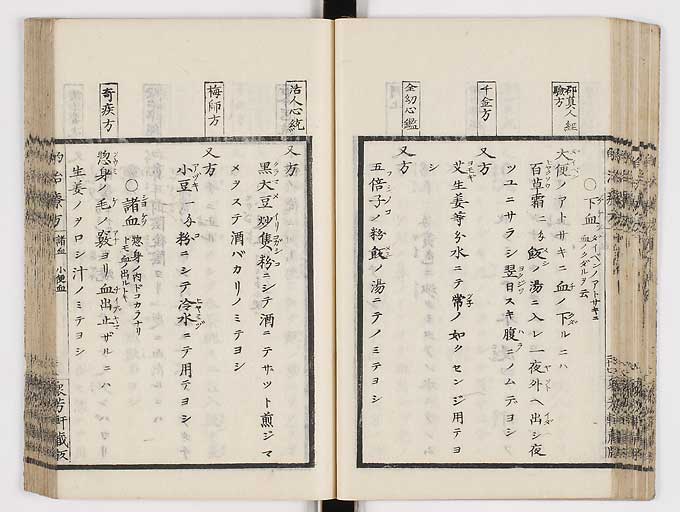 邵真人經驗方
○下血 ダイベンノアトサキニ血ノクダルヲ云
大便ノアトサキニ血ノ下ルニハ
百草霜二匁飯ノ湯ニ入レ一夜外ヘ出シ夜
ツユニサラシ翌日スキ腹ニノムテヨシ
千金方
又方
艾生姜等分水ニテ常ノ如クセンジ用テヨ
シ
全幼心鑑
又方
五倍子ノ粉飯ノ湯ニテノミテヨシ
活人心統
又方
黒大豆炒焦粉ニシテ酒ニテサット煎ジマ
メヲステ酒バカリノミテヨシ
梅師方
又方
小豆一合粉ニシテ冷水ニテ用テヨシ
○諸血 惣身ノ内ドコカラナリトモ血ノ出ルトキ
奇疾方
惣身ノ毛ノ竅ヨリ血出止ザルニハ
生姜ノヲロシ汁ノミテヨシ
的治療方 諸血 小便血
衆芳軒藏版